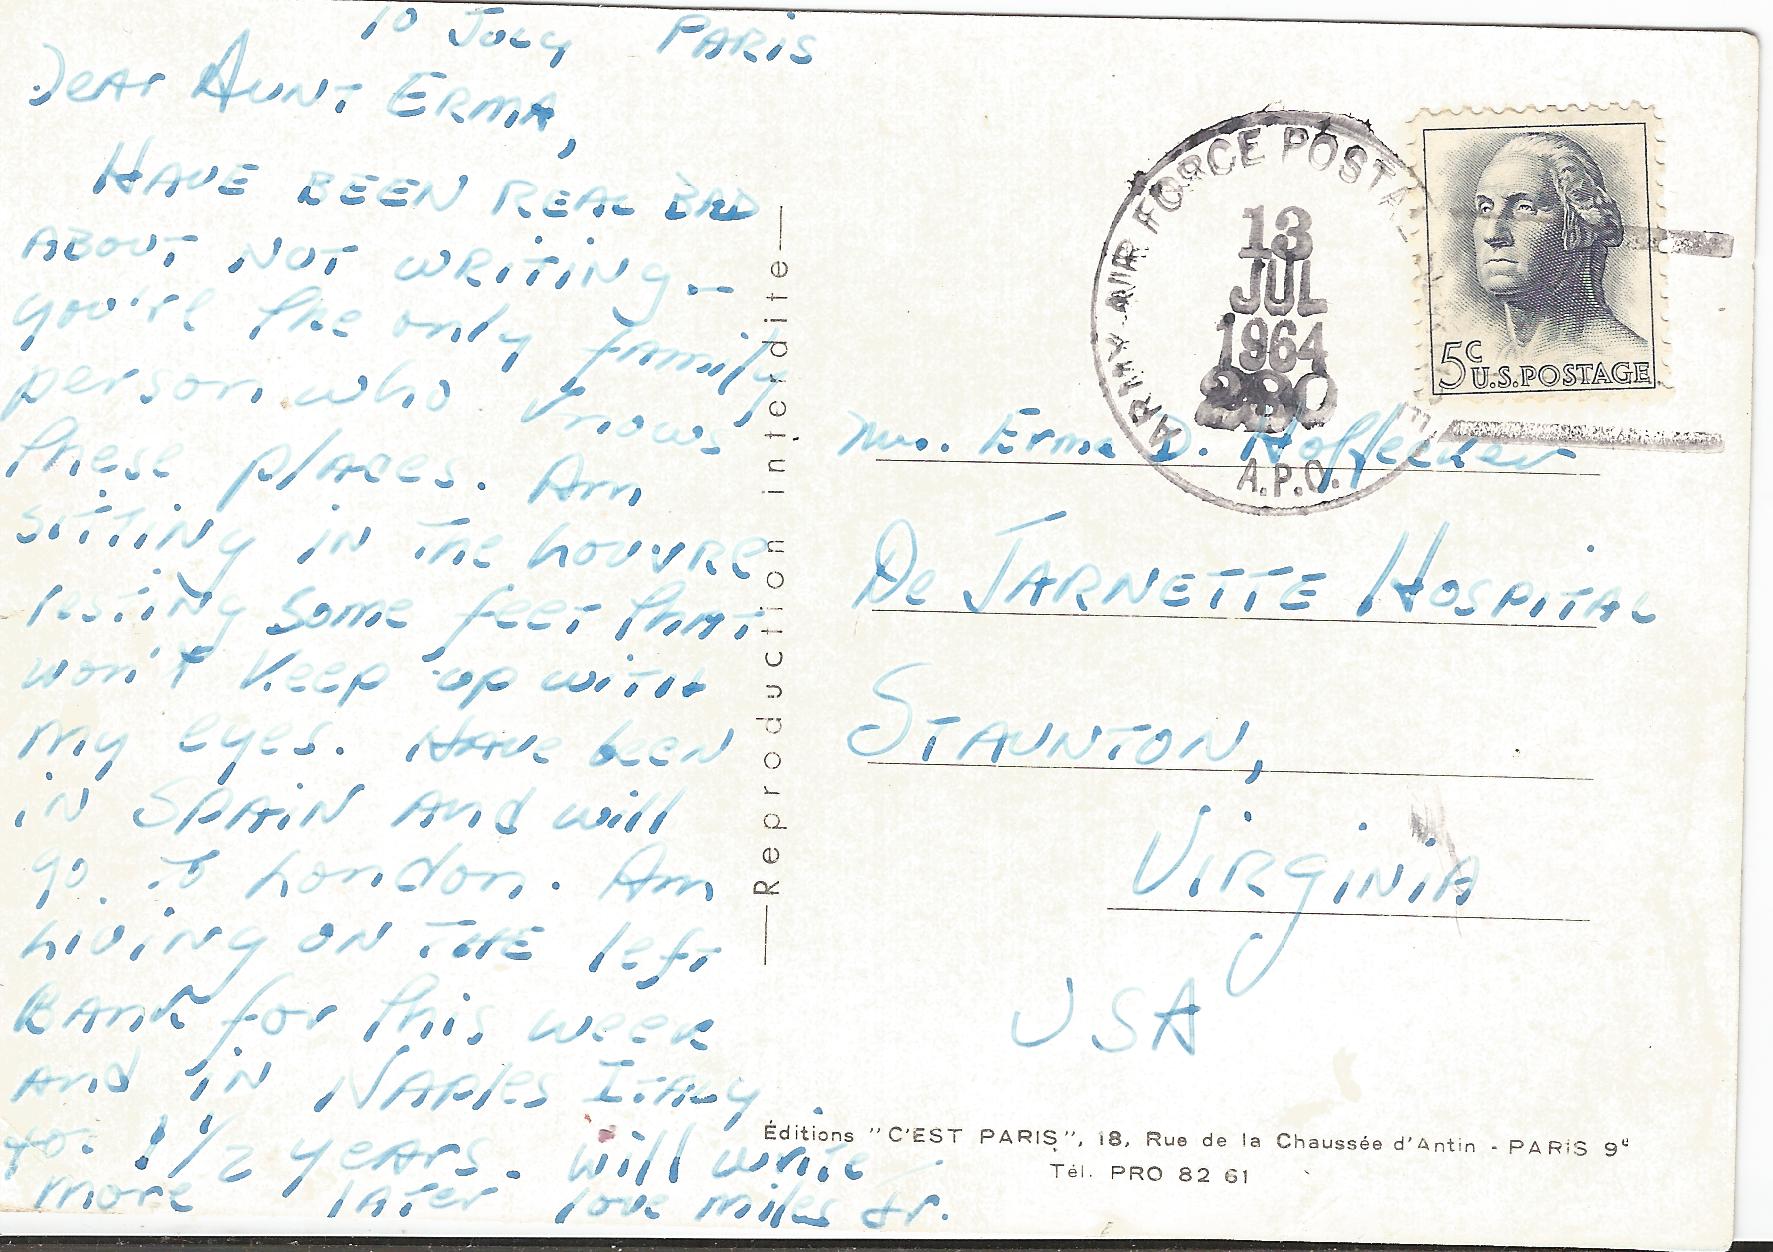 10 July PARIS
Dear AUNT ERMA,
HAVE BEEN REAL BAD
ABOUT NOT WRITING -
you're the only family
person who knows
these places. Am
SITTING IN THE LOUVRE
resting some feet that
won't keep up with
my eyes. Have been
IN SPAIN AND will
go to London. Am
LIVING ON THE left
BANK for this week
AND IN NAPLES ITALY.
for 1 1/2 years. Will write
more later love miles Jr.
— Reproduction interdite —
ARMY-AIR FORCE POSTAL
13
JUL
1964
230
A.P.O.
5c U.S.POSTAGE
Mrs. Erma D. Hoffecker
De JARNETTE HOSPITAL
STAUNTON,
VIRGINIA
USA
Éditions "C'EST PARIS", 18, Rue de la Chaussée d'Antin - PARIS 9e
Tél. PRO 82 61